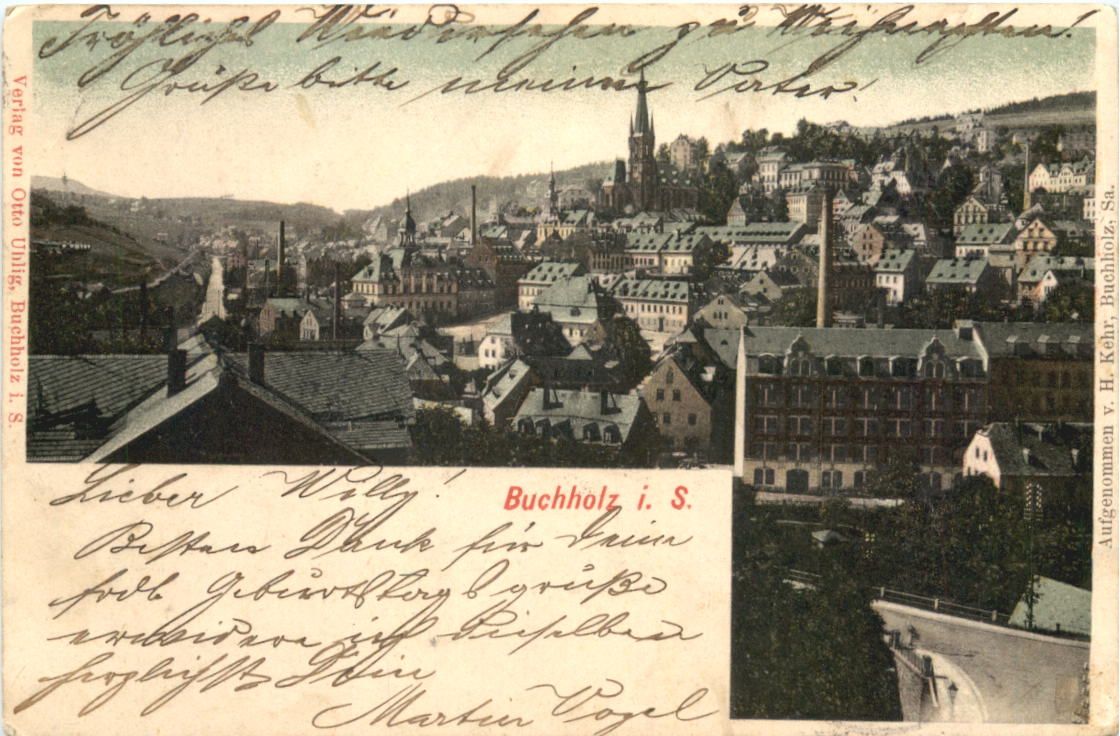 Fröhliches Wiedersehen zu Weihnachten!
Grüße bitte meinen Vater.
Verlag von Otto Uhlig, Buchholz i. S.
Aufgenommen v. H. Kehr, Buchholz, Sa.
Buchholz i. S.
Lieber Willy!
Besten Dank für Deine
frdl. Geburtstagsgrüße
erwidere ich dieselben
herzlichst Dein
Martin Vogel